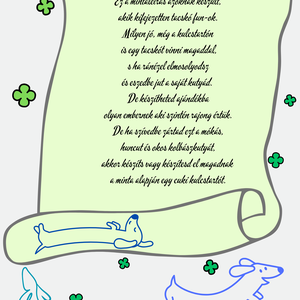 Ez a mintaleírás azoknak készült,
akik kifejezetten tacskó fan-ok.
Milyen jó, még a kulcstartón
is egy tacskót vinni magaddal,
s ha ránézel elmosolyodsz
és eszedbe jut a saját kutyád.
De készítheted ajándékba
olyan embernek aki szintén rajong értük.
De ha szívedbe zártad ezt a mókás,
huncut és okos kolbászkutyát,
akkor készíts vagy készítesd el magadnak
a minta alapján egy cuki kulcstartót.